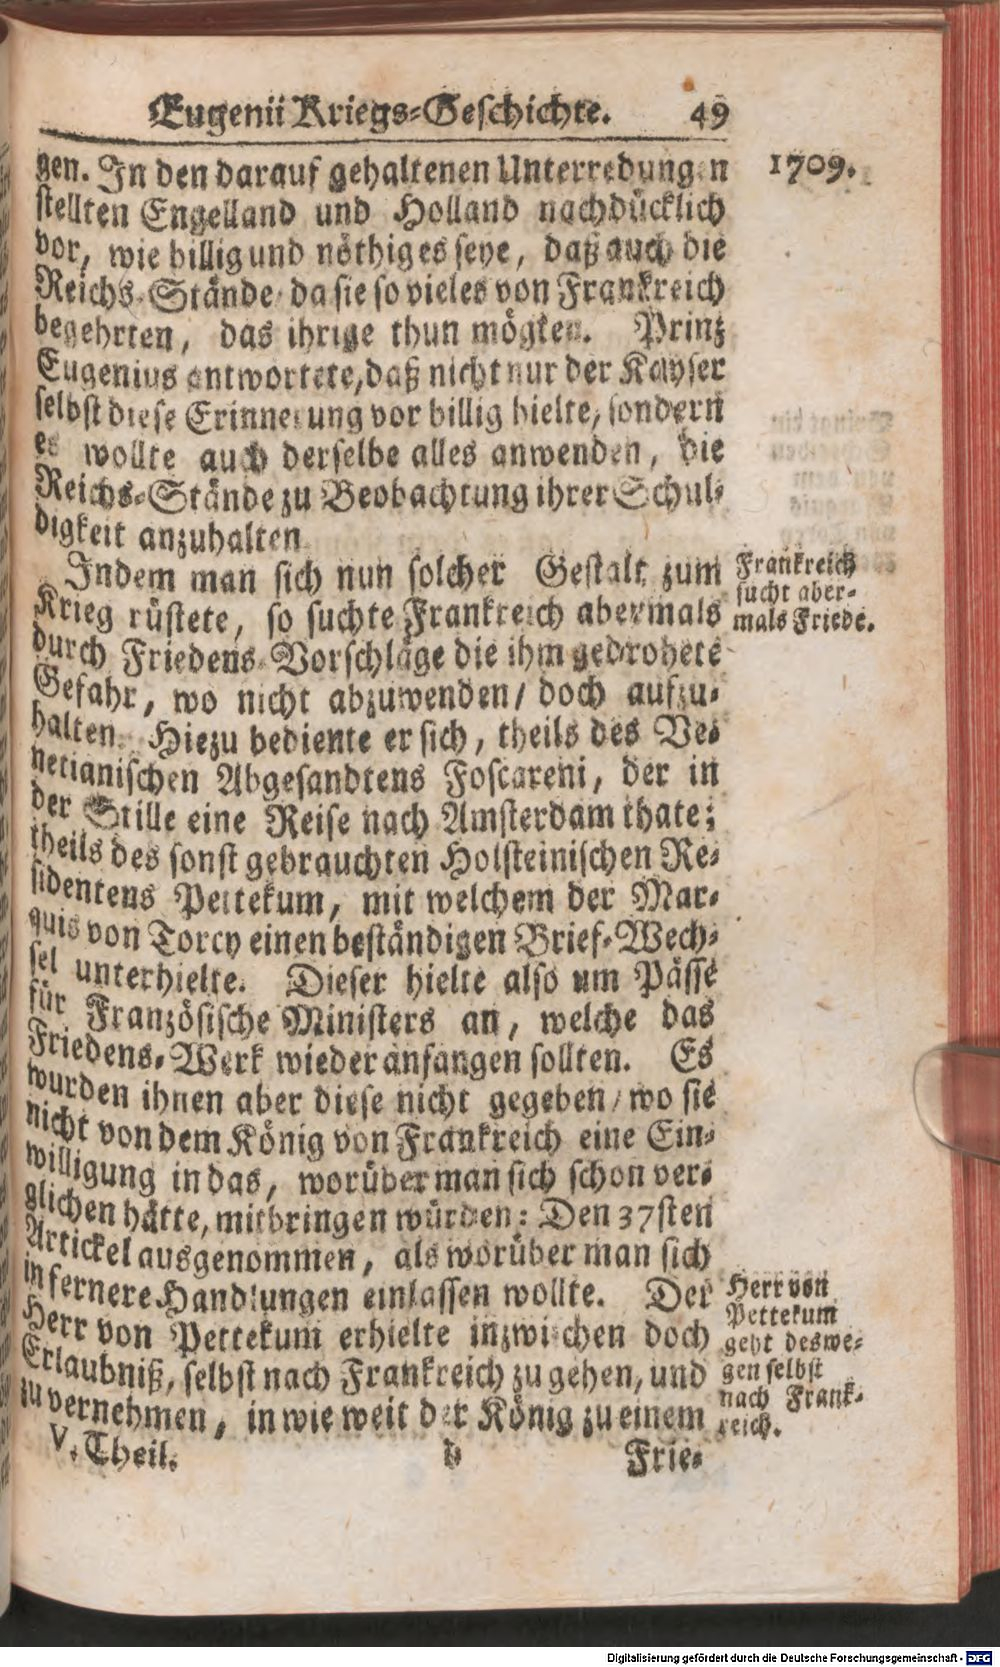 Eugenii Kriegs-Geschichte. 49
1709.
gen. In den darauf gehaltenen Unterredungen
stellten Engelland und Holland nachdücklich
vor, wie billig und nöthig es seye, daß auch die
Reichs-Stände / da sie so vieles von Frankreich
begehrten, das ihrige thun mögten. Prinz
Eugenius antwortete, daß nicht nur der Kayser
selbst diese Erinnerung vor billig hielte, sondern
es wollte auch derselbe alles anwenden, die
Reichs-Stände zu Beobachtung ihrer Schul-
digkeit anzuhalten
Indem man sich nun solcher Gestalt zum
Krieg rüstete, so suchte Frankreich abermals
durch Friedens-Vorschläge die ihm gedrohete
Gefahr, wo nicht abzuwenden / doch aufzu-
halten. Hiezu bediente er sich, theils des Ve-
netianischen Abgesandtens Foscareni, der in
der Stille eine Reise nach Amsterdam thate;
theils des sonst gebrauchten Holsteinischen Re-
sidentens Pettekum, mit welchem der Mar-
quis von Torcy einen beständigen Brief-Wech-
sel unterhielte. Dieser hielte also um Pässe
für Französische Ministers an, welche das
Friedens-Werk wieder anfangen sollten. Es
wurden ihnen aber diese nicht gegeben / wo sie
nicht von dem König von Frankreich eine Ein-
willigung in das, worüber man sich schon ver-
glichen hätte, mitbringen würden: Den 37sten
Artickel ausgenommen, als worüber man sich
in fernere Handlungen einlassen wollte. Der
Herr von Pettekum erhielte inzwischen doch
Erlaubniß, selbst nach Frankreich zu gehen, und
zu vernehmen, in wie weit der König zu einem
V. Theil. d Frie-
Frankreich
sucht aber-
mals Friede.
Herr von
Pettekum
geht deswe-
gen selbst
nach Frank-
reich.
Digitalisierung gefördert durch die Deutsche Forschungsgemeinschaft - DFG